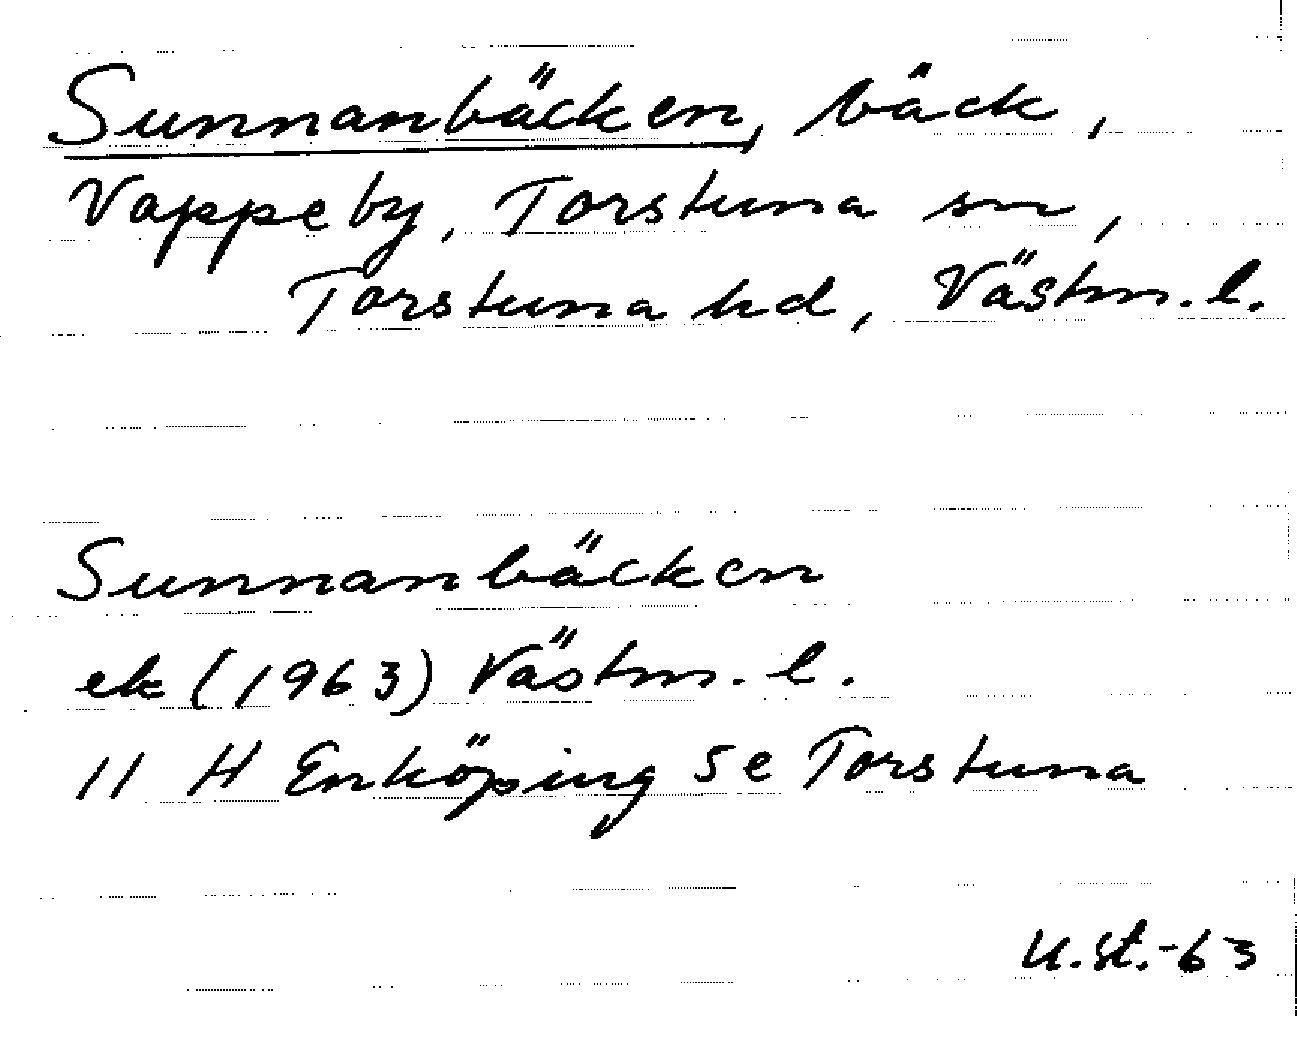 Sunnanbäcken, bäck,
Vappeby, Torstuna sn,
Torstuna hd, Västm. l.
Sunnanbäcken
ek (1963) Västm. l.
11 H Enköping Se Torstuna
U.St.-63